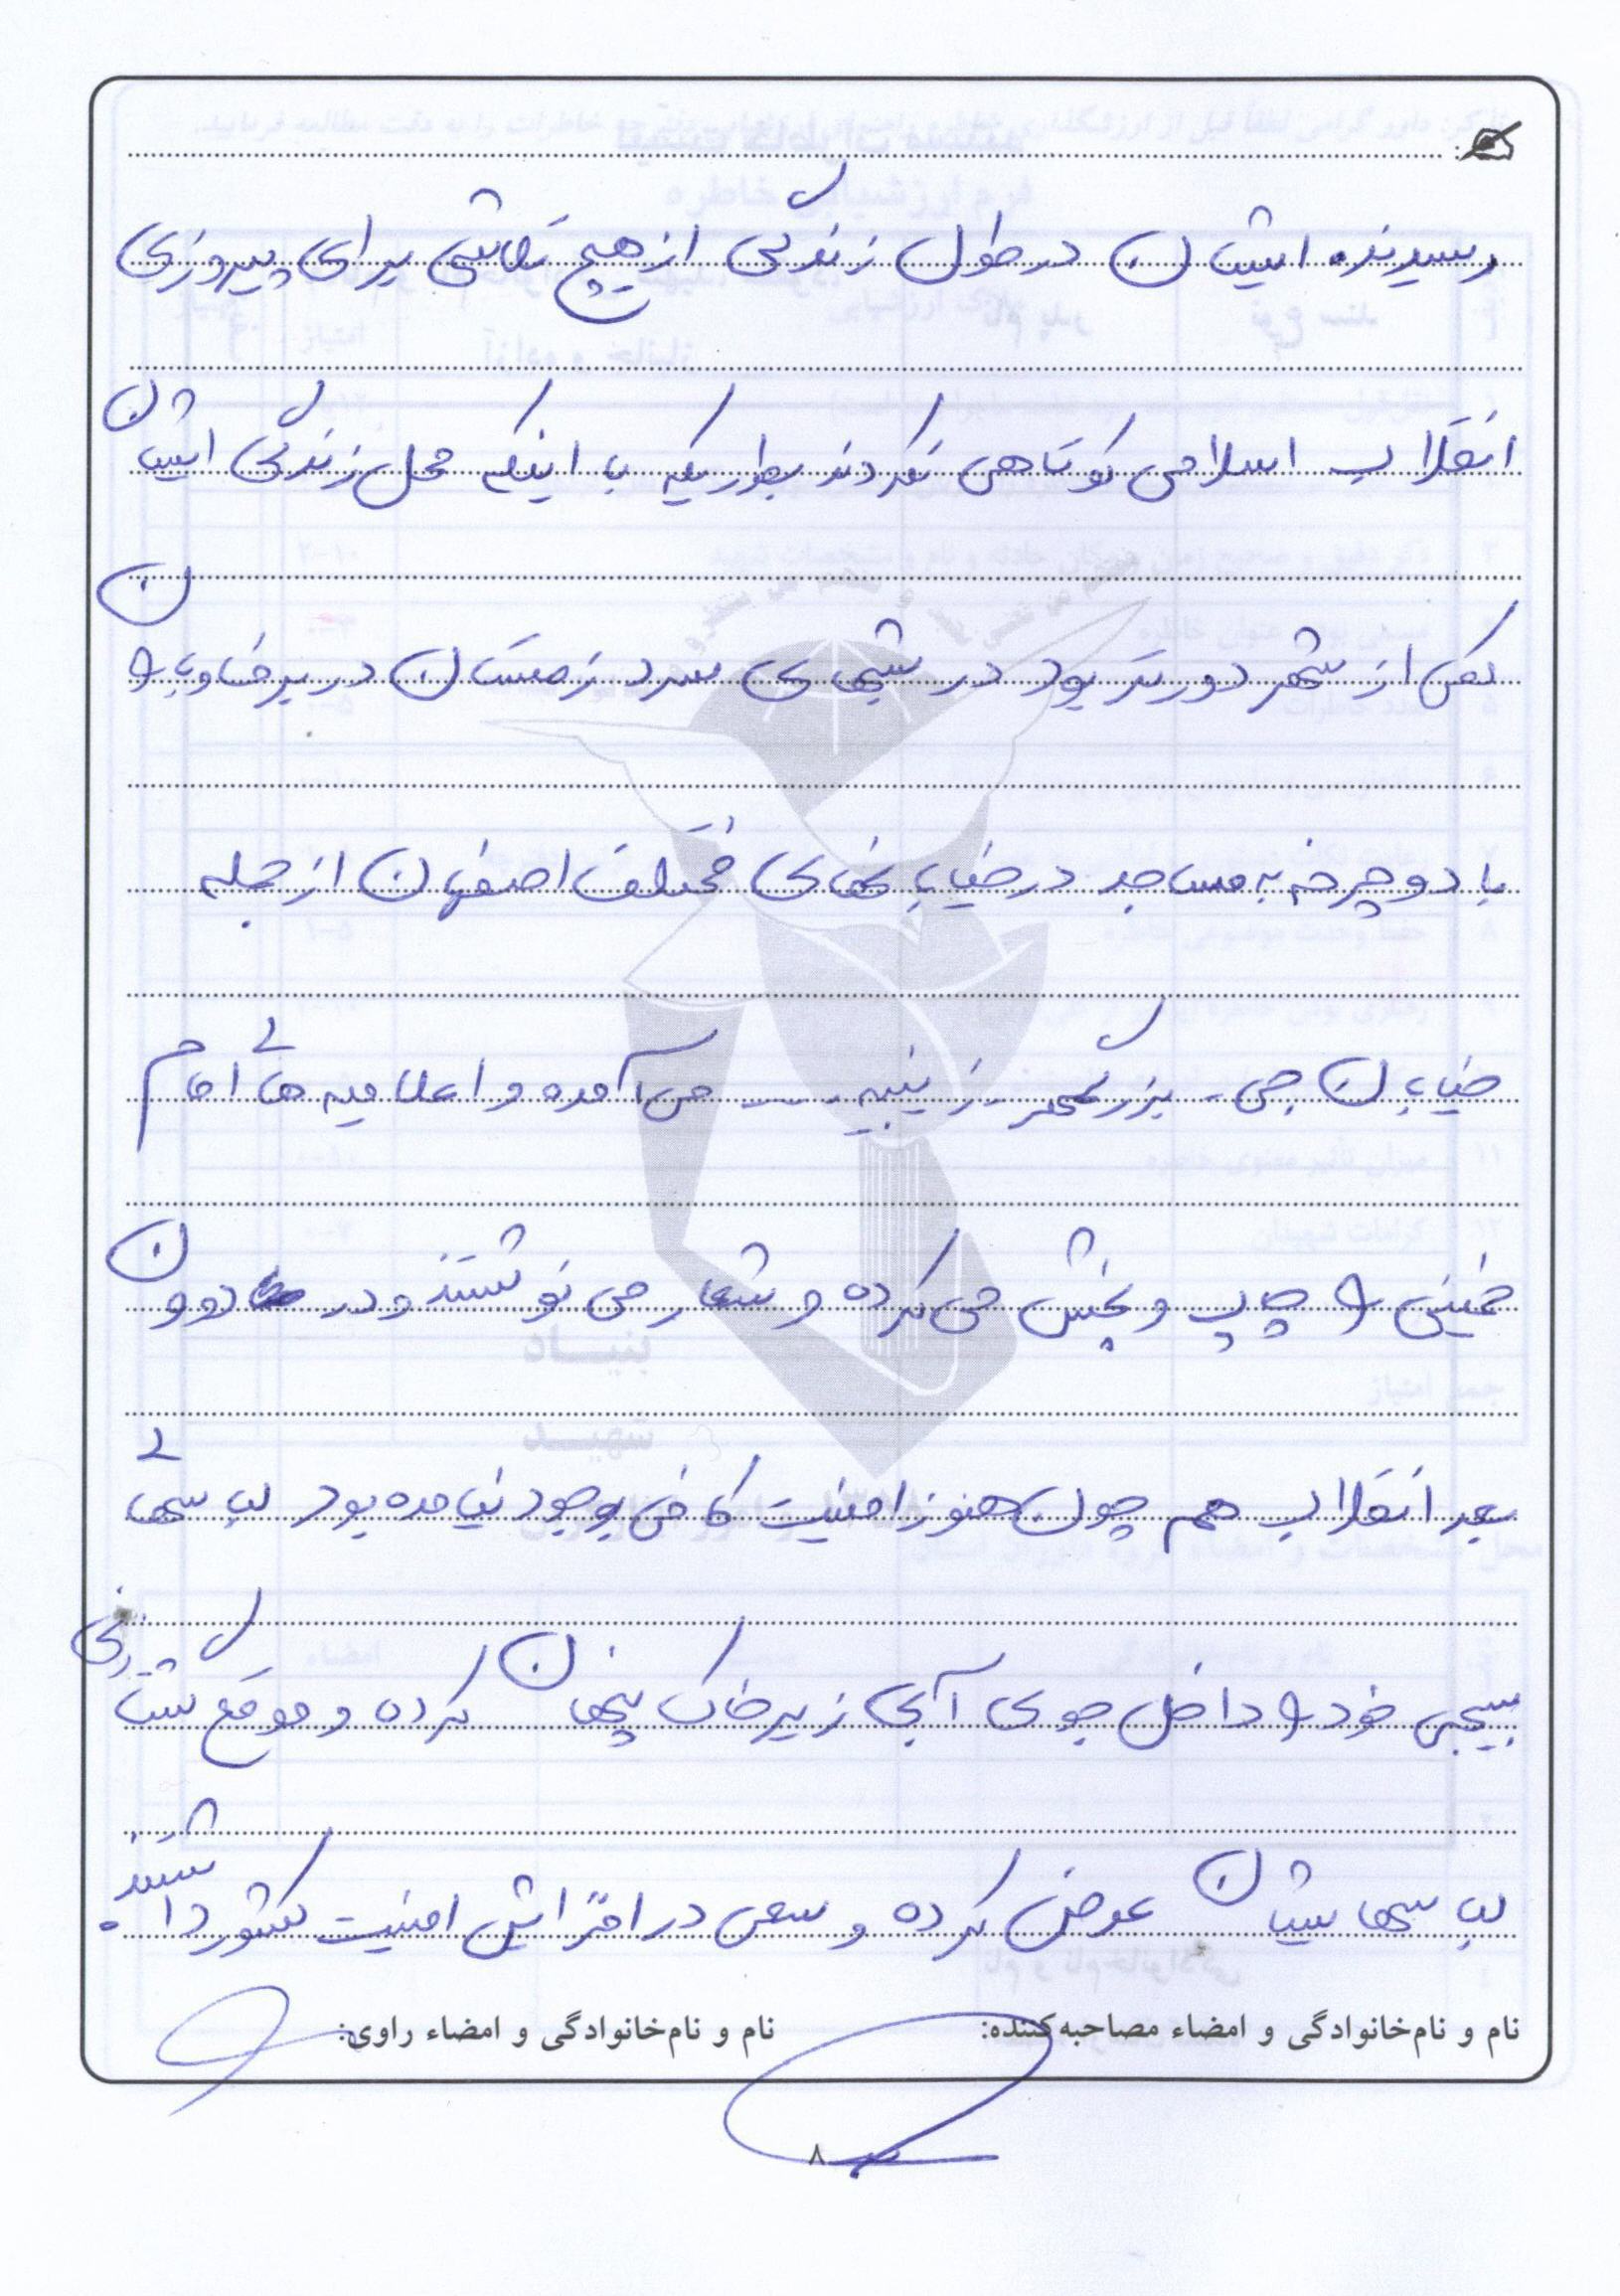 رسیدند. ایشان در طول زندگی از هیچ تلاشی برای پیروزی
انقلاب اسلامی کوتاهی نکردند بطوریکه با اینکه محل زندگی ایشان
کمی از شهر دورتر بود در شبهای سرد زمستان در برف و باران
با دوچرخه به مساجد در خیابانهای مختلف اصفهان از جمله
خیابان جی - بزرگمهر - زینبیه ..... می آمده و اعلامیه های امام
خمینی را چاپ و پخش می کرده و شعار می نوشتند و در دوران
بعد انقلاب هم چون هنوز امنیت کافی بوجود نیامده بود لباسهای
بسیجی خود را داخل جوی آبی زیر خاک پنهان کرده و موقع شب
لباسهایشان عوض کرده و سعی در افزایش امنیت کشور داشتند.
نام و نام‌خانوادگی و امضاء مصاحبه‌کننده: نام و نام‌خانوادگی و امضاء راوی:
۸